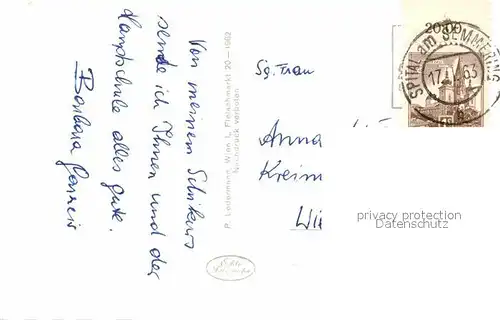 Von meinem Schikurs
sende ich Ihnen und der
Hauptschule alles gute.
Barbara
P. Ledermann, Wien I., Fleischmarkt 20 — 1962
Nachdruck verboten
Echte
Sg. Frau
Anna
Kreim
Wi
20.00
SPITAL am SEMMERING
17. 63
privacy protection
Datenschutz